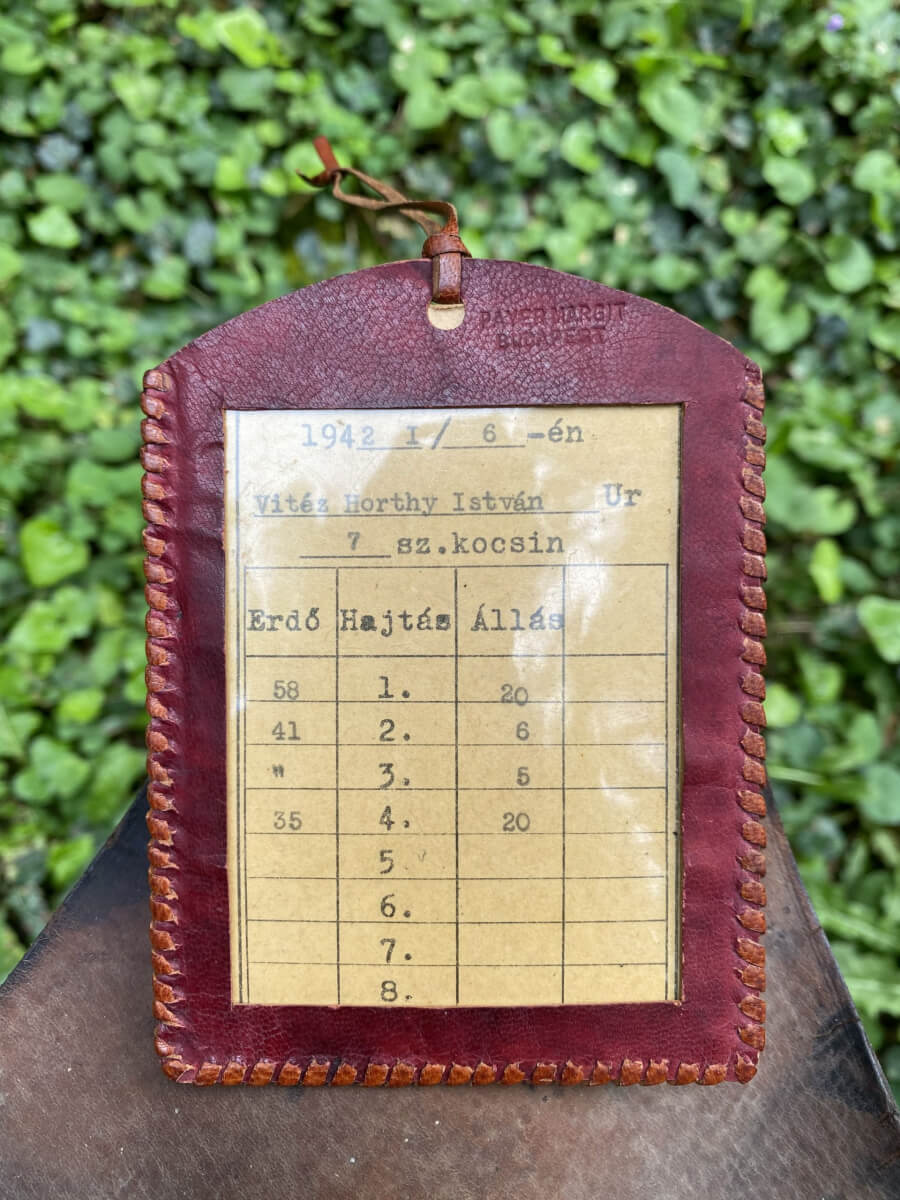 PAYER MARGIT
BUDAPEST
1942 I/ 6 -én
Vitéz Horthy István Ur
7 sz.kocsin
Erdő Hajtás Állás
58 1. 20
41 2. 6
" 3. 5
35 4. 20
5
6.
7.
8.